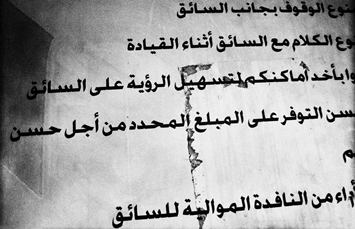 منوع الوقوف بجانب السائق
وع الكلام مع السائق أثناء القيادة
وابأخد أماكنكم لتسهيل الرؤية على السائق
سن التوفر على المبلغ المحدد من أجل حسن
م
أداء من النافدة الموالية للسائق